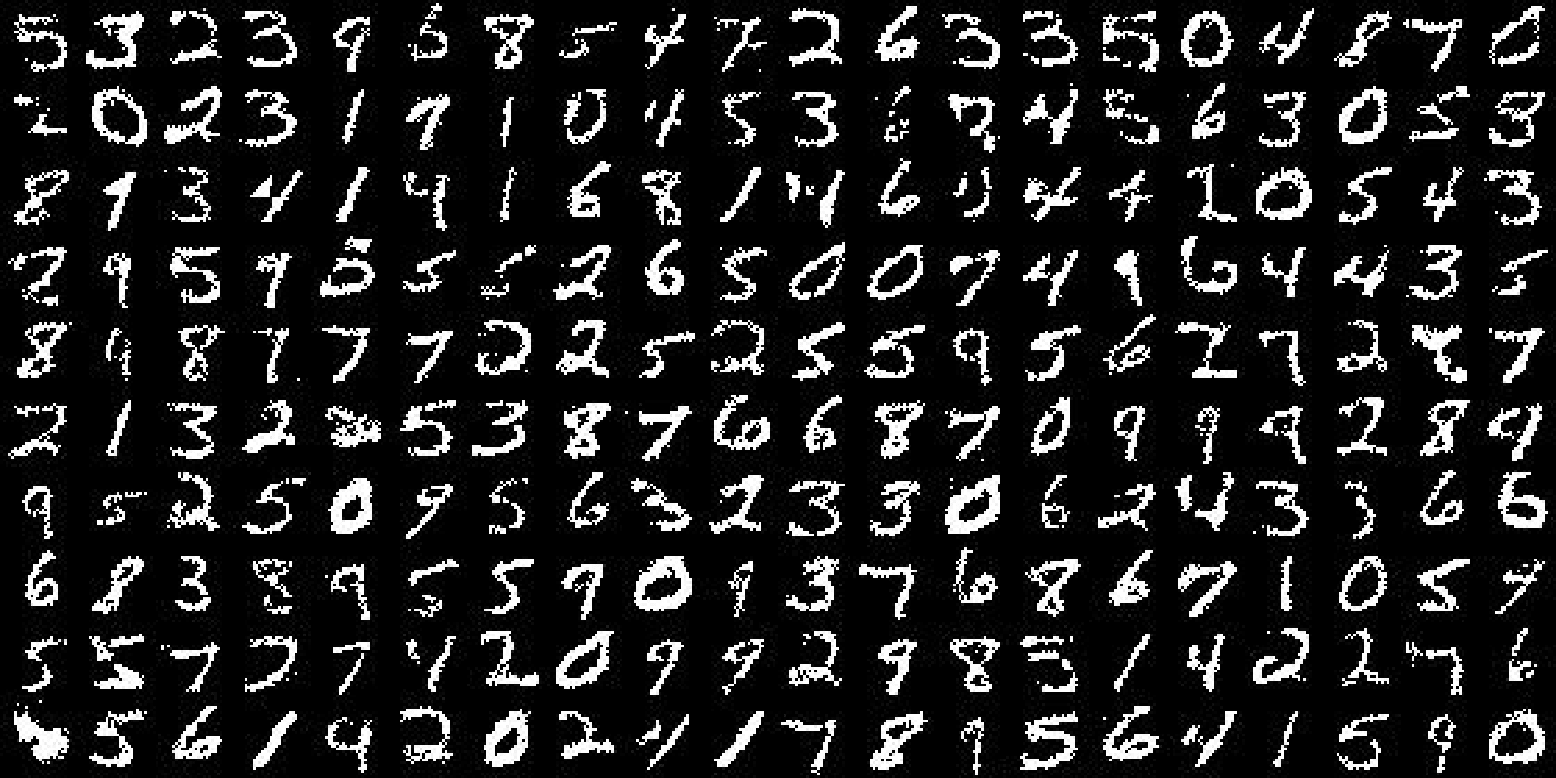 5 3 2 3 9 5 8 5 4 7 2 6 3 3 5 0 4 8 7 0
2 0 2 3 1 9 1 0 4 5 3 6 7 4 5 6 3 0 5 3
8 9 3 4 1 9 1 6 8 1 4 6 4 4 2 0 5 4 3
2 9 5 9 5 5 5 2 6 5 0 0 7 4 9 6 4 4 3 5
8 9 8 7 7 7 2 2 5 2 5 5 9 5 6 2 7 2 7
2 1 3 2 5 3 8 7 6 6 8 7 0 9 9 9 2 8 9
9 5 2 5 0 9 5 6 3 2 3 3 0 6 2 4 3 3 6 6
6 8 3 8 9 5 5 9 0 9 3 7 6 8 6 7 1 0 5 9
5 5 7 7 7 4 2 0 9 9 2 9 8 5 1 4 2 2 7 6
5 6 1 9 2 0 2 4 1 7 8 9 5 6 4 1 5 9 0